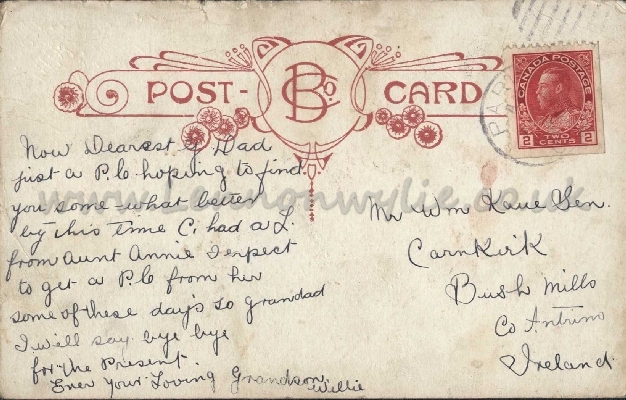 POST-CARD
BCo.
CANADA POSTAGE
2 TWO CENTS 2
PAR
www.Lennonwylie.co.uk
Now Dearest G. Dad
just a P.C hoping to find
you some-what better
by this time C. had a L.
from Aunt Annie I expect
to get a P.C from her
some of these days so grandad
I will say bye bye
for the Present.
Ever Your Loving Grandson
Willie
Mr Wm Kane Sen.
Carnkirk
Bush Mills
Co Antrim
Ireland